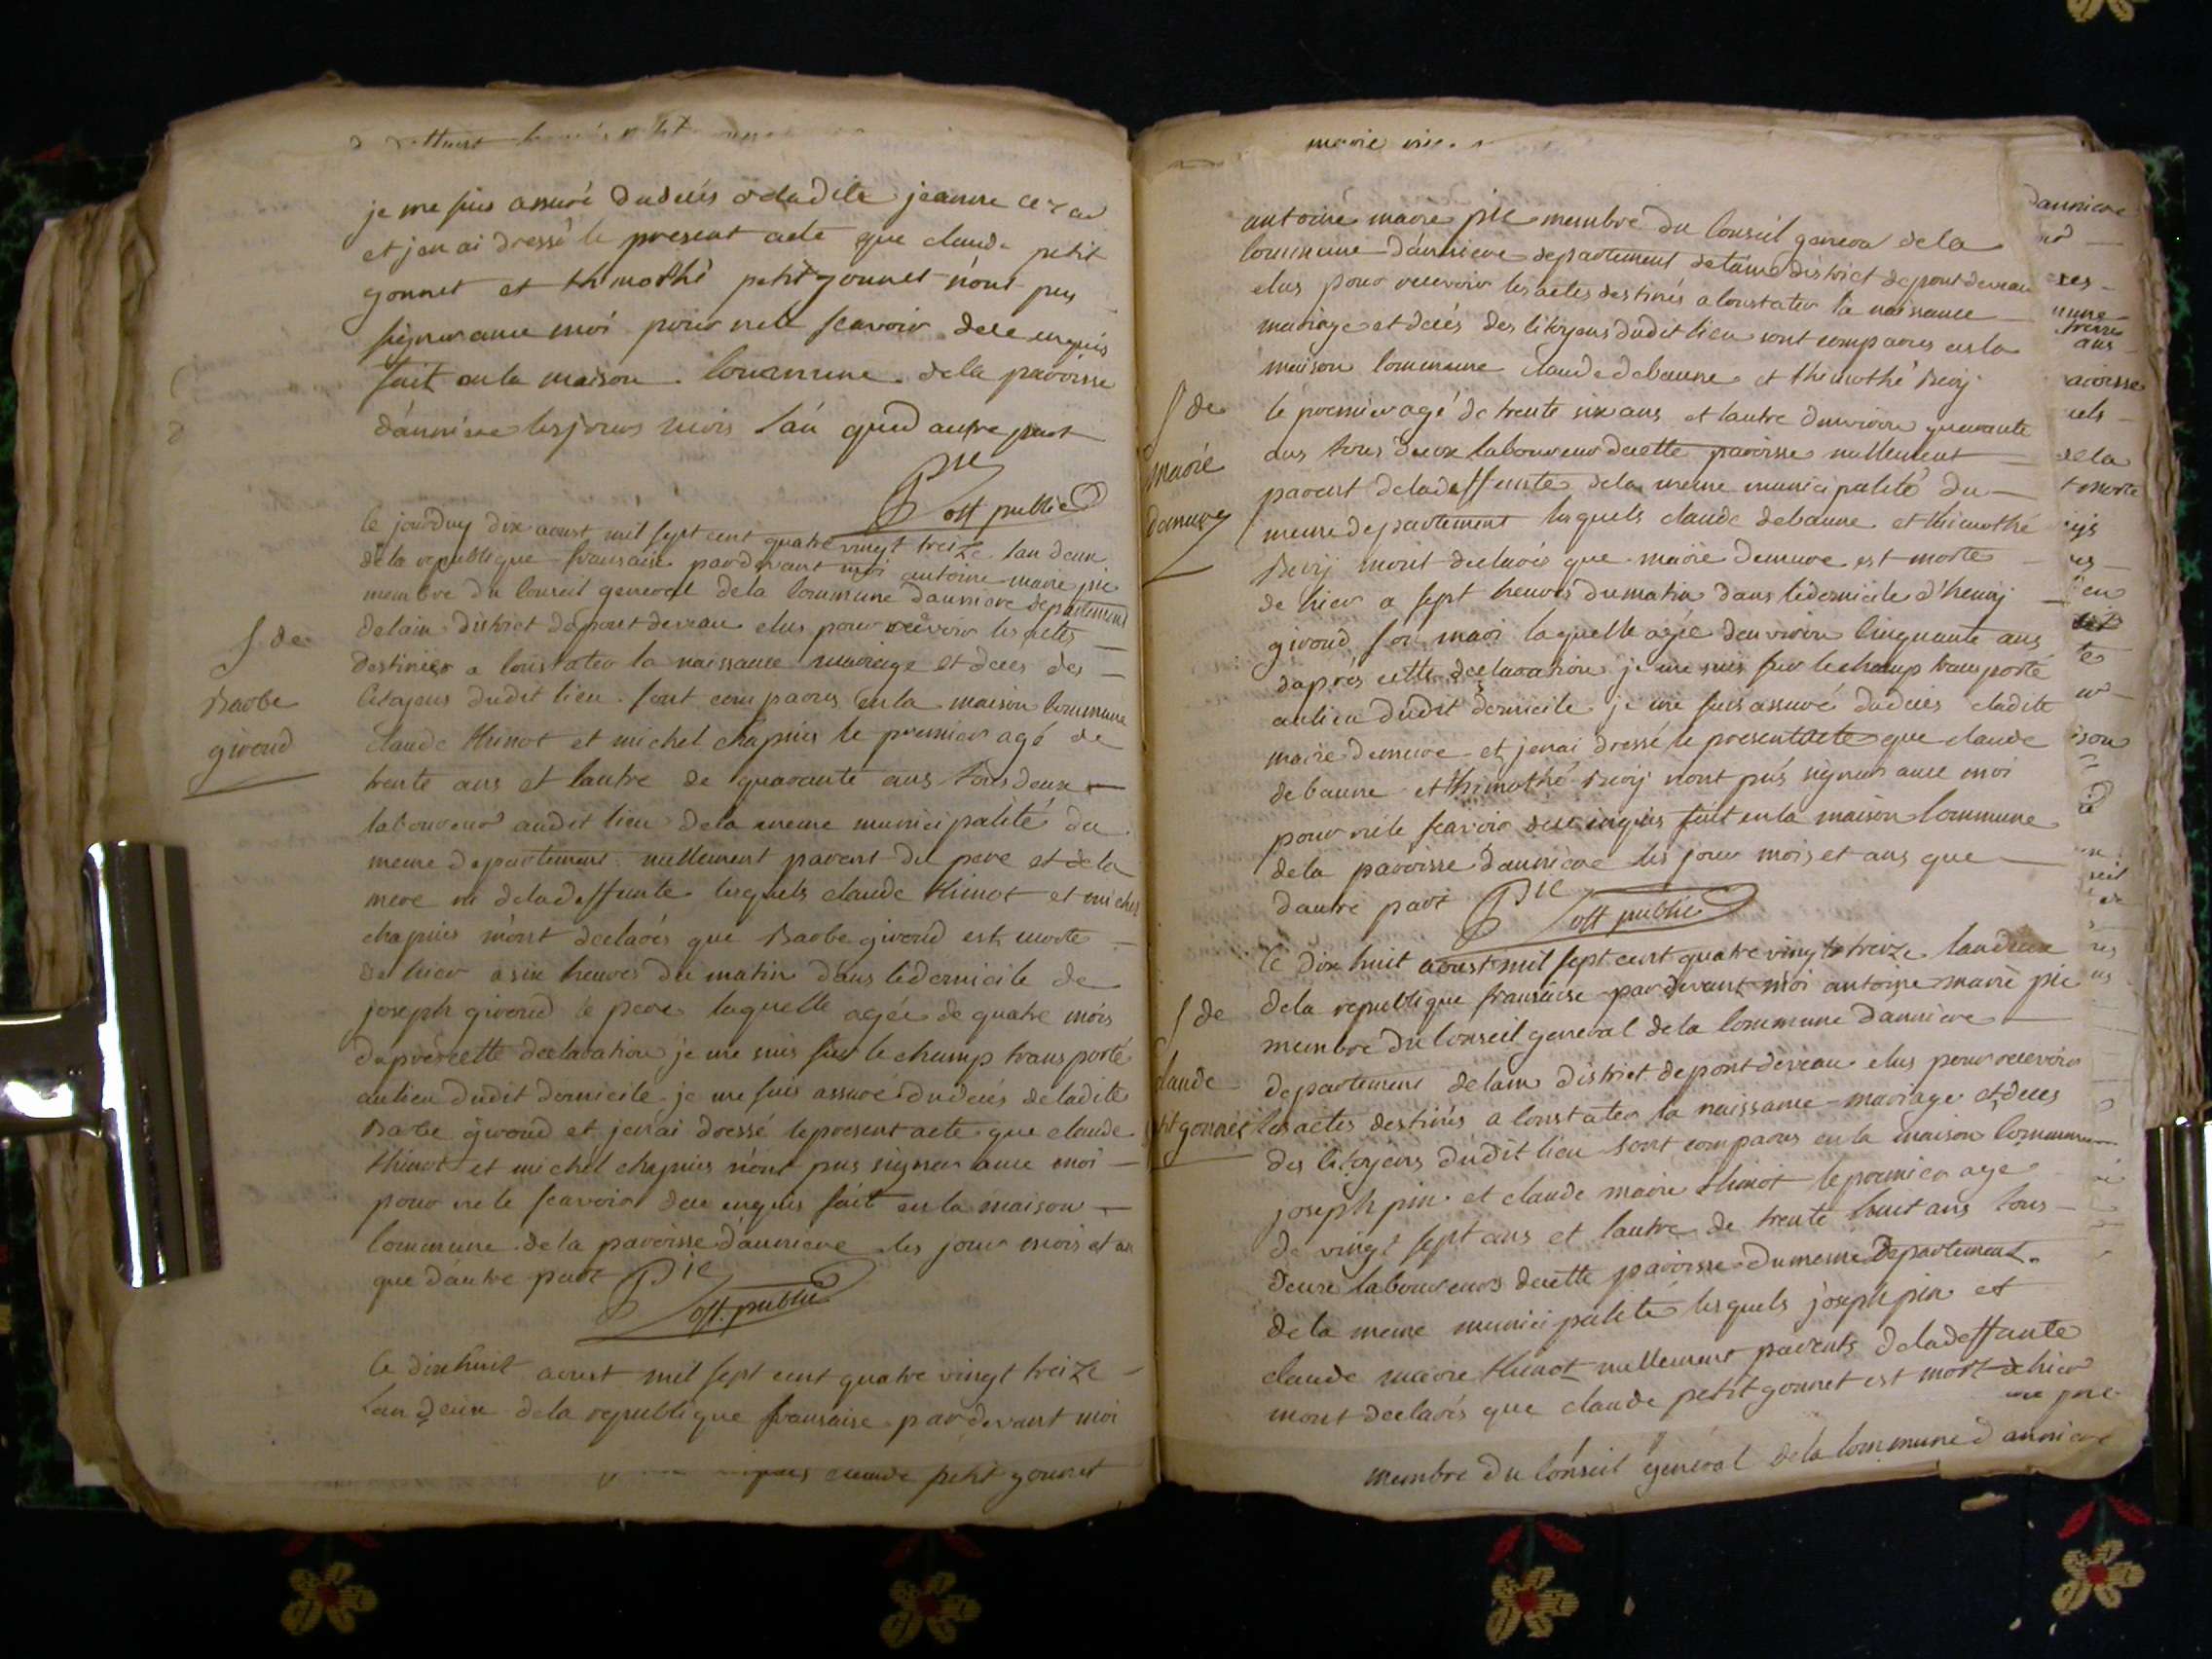 je me suis assuré dudecés deladite jeanne
et jen ai dressé le present acte que claude petit
gonnet et thimothé petit gonnet n'ont pus
signer avec moi pour ne le scavoir dece enquis
fait en la maison commune dela paroisse
d'anniere les jours mois l'an que d'autre part
Pic
off public
le jourd'uy dix aoust mil sept cent quatre vingt treize lan deux
de la republique fransaise pardevant moi antoine marie pic
membre du conseil general dela commune danniere departement
delain district de pont deveau elus pour recevoir les actes
destinés a constater la naissance mariage et deces des
citoyens dudit lieu sont comparus en la maison commune
claude thinot et michel chapuis le premier agé de
trente ans et lautre de quarante ans tous deux
laboureur audit lieu dela meme municipalité du
meme departement nullement parent du pere et dela
mere ni deladeffunte lesquels claude thinot et michel
chapuis m'ont declarés que Barbe giroud est morte
de hier a six heures du matin dans ledomicile de
joseph giroud le pere laquelle agée de quatre mois
daprés cette declaration je me suis sur le champ transporté
aulieu dudit domicile je me suis assuré dudecés deladite
Barbe giroud et jenai dressé lepresent acte que claude
thinot et michel chapuis n'ont pus signer avec moi
pour ne le scavoir dece enquis fait en la maison
commune de la paroisse d'anniere les jour mois et an
que d'autre part Pic
off. public
le dix huit aoust mil sept cent quatre vingt treize
lan deux dela republique fransaise pardevant moi
claude petit gonnet
s de
Barbe
giroud
marie
antoine marie pic membre du conseil general dela
commune d'anniere departement delain district depont deveau
elus pour recevoir les actes destinés a constater la naissance
mariage et decés des citoyens dudit lieu sont comparus en la
maison commune claude debaune et thimothé Revy
le premier agé de trente six ans et lautre denviron quarante
ans tous deux laboureur decette paroisse nullement
parent deladeffunte dela meme municipalité du
meme departement lesquels claude debaune et thimothé
Revy m'ont declarés que marie demure est morte
de hier a sept heures dumatin dans ledomicile d'henry
giroud son mari laquelle agée denviron cinquante ans
daprés cette declaration je me suis sur lechamp transporté
aulieu dudit domicile je me suis assuré dudecés deladite
marie demure et jenai dressé le present acte que claude
debaune et thimothé Revy n'ont pus signer avec moi
pour ne le scavoir dece enquis fait en la maison commune
de la paroisse d'anniere les jour mois et ans que
dautre part Pic
off public
le dix huit aoust mil sept cent quatre vingt treize landeux
dela republique fransaise pardevant moi antoine marie pic
membre du conseil general de la commune danniere
departement delain district depont deveau elus pour recevoir
les actes destinés a constater la naissance mariage et deces
des citoyens dudit lieu sont comparus en la maison commune
joseph pin et claude marie thinot le premier agé
de vingt sept ans et lautre de trente huit ans tous
deux laboureurs decette paroisse dumeme departement
dela meme municipalité lesquels joseph pin et
claude marie thinot nullement parents deladeffunte
mont declarés que claude petit gonnet est mort dehier
membre du conseil general dela commune d'anniere
s de
marie
demure
s de
claude
petit gonnet
danniere